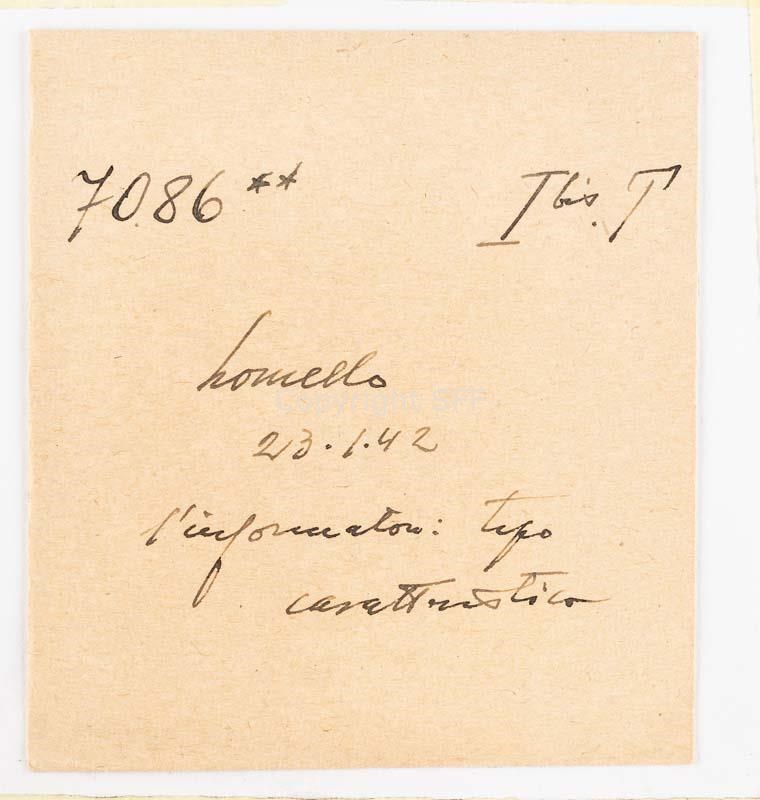 7086 ** I bis. T
Lomello
23.1.42
l'informatore: tipo
caratteristico
Copyright SPF